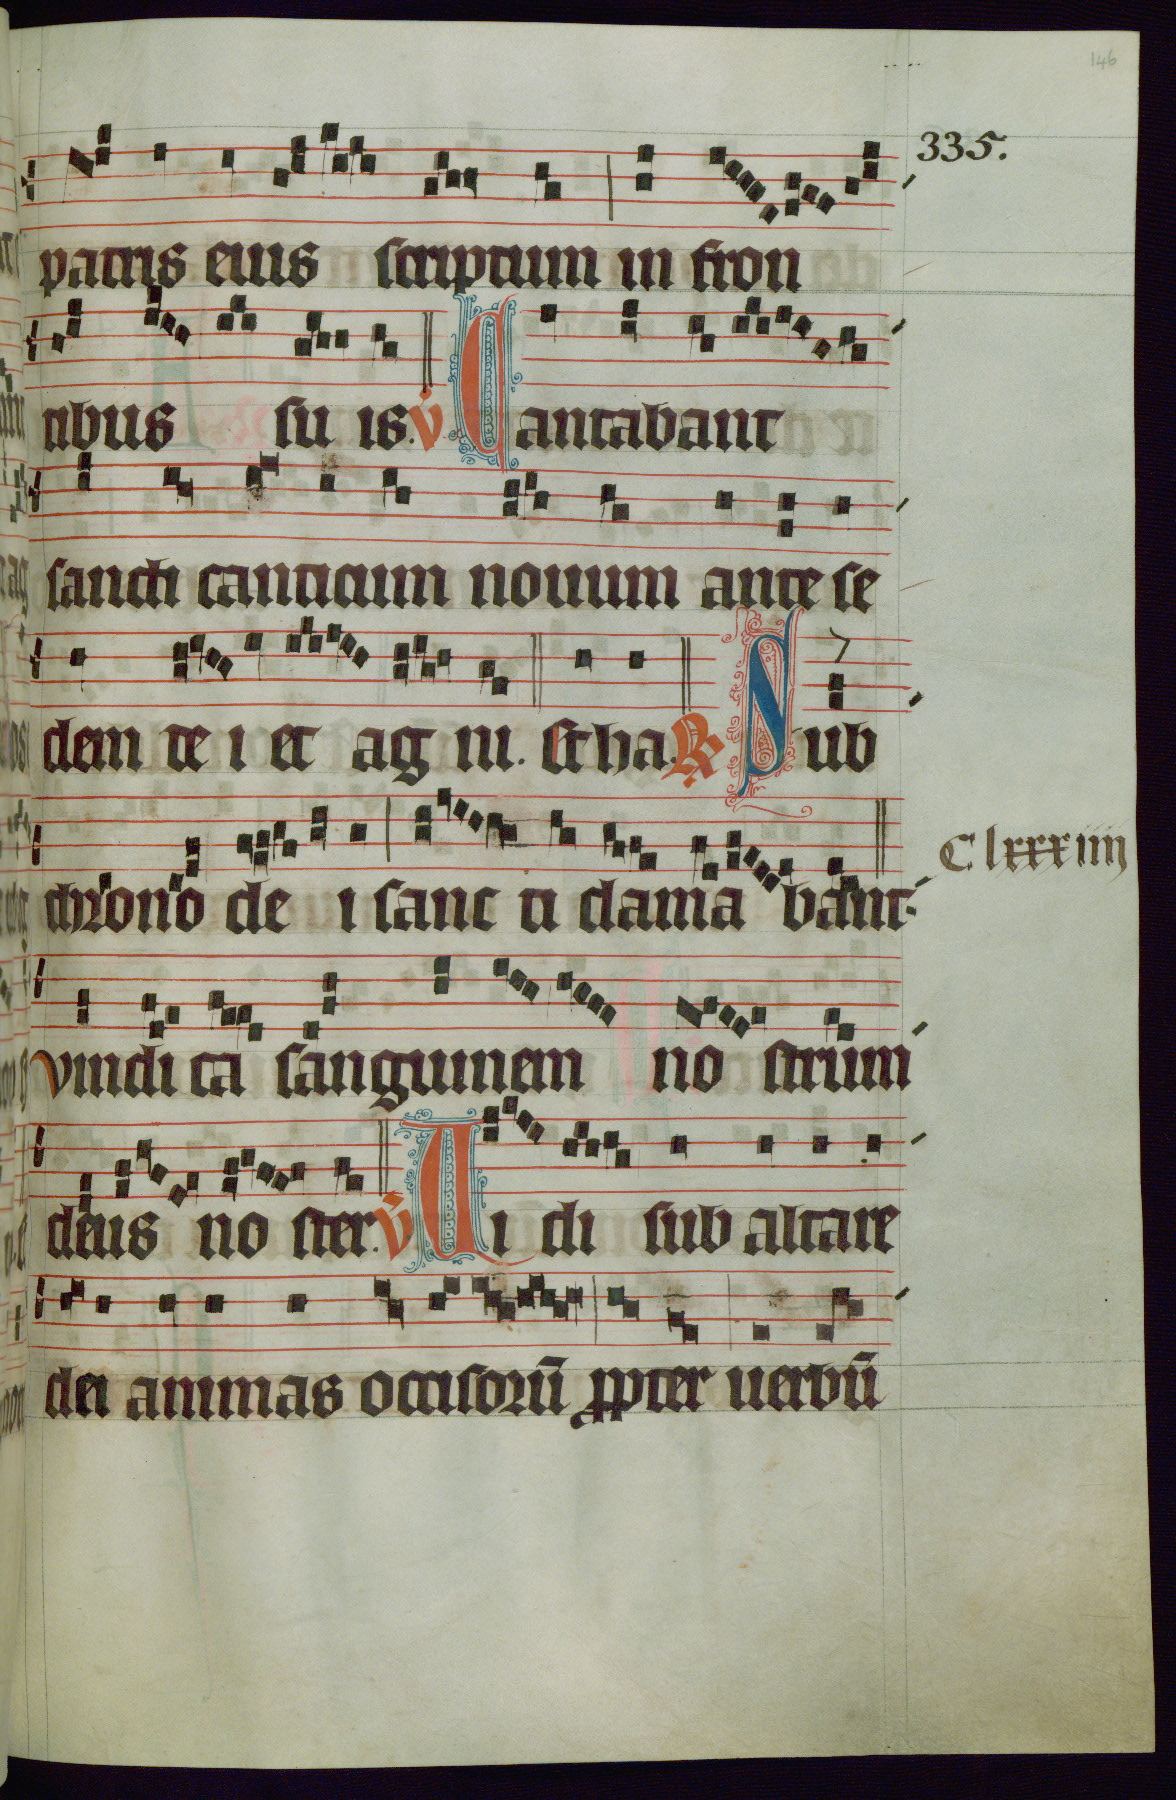 146
335.
patris eius scriptum in fron
tibus su is. v Cantabant
sancti canticum nouum ante se
dem de i et ag ni. Et ha. R Sub
throno de i sanc ti clama bant.
C lxxxiiii
vindi ca sanguinem no strum
deus no ster. v Vi di sub altare
dei animas occisorū propter uerbū